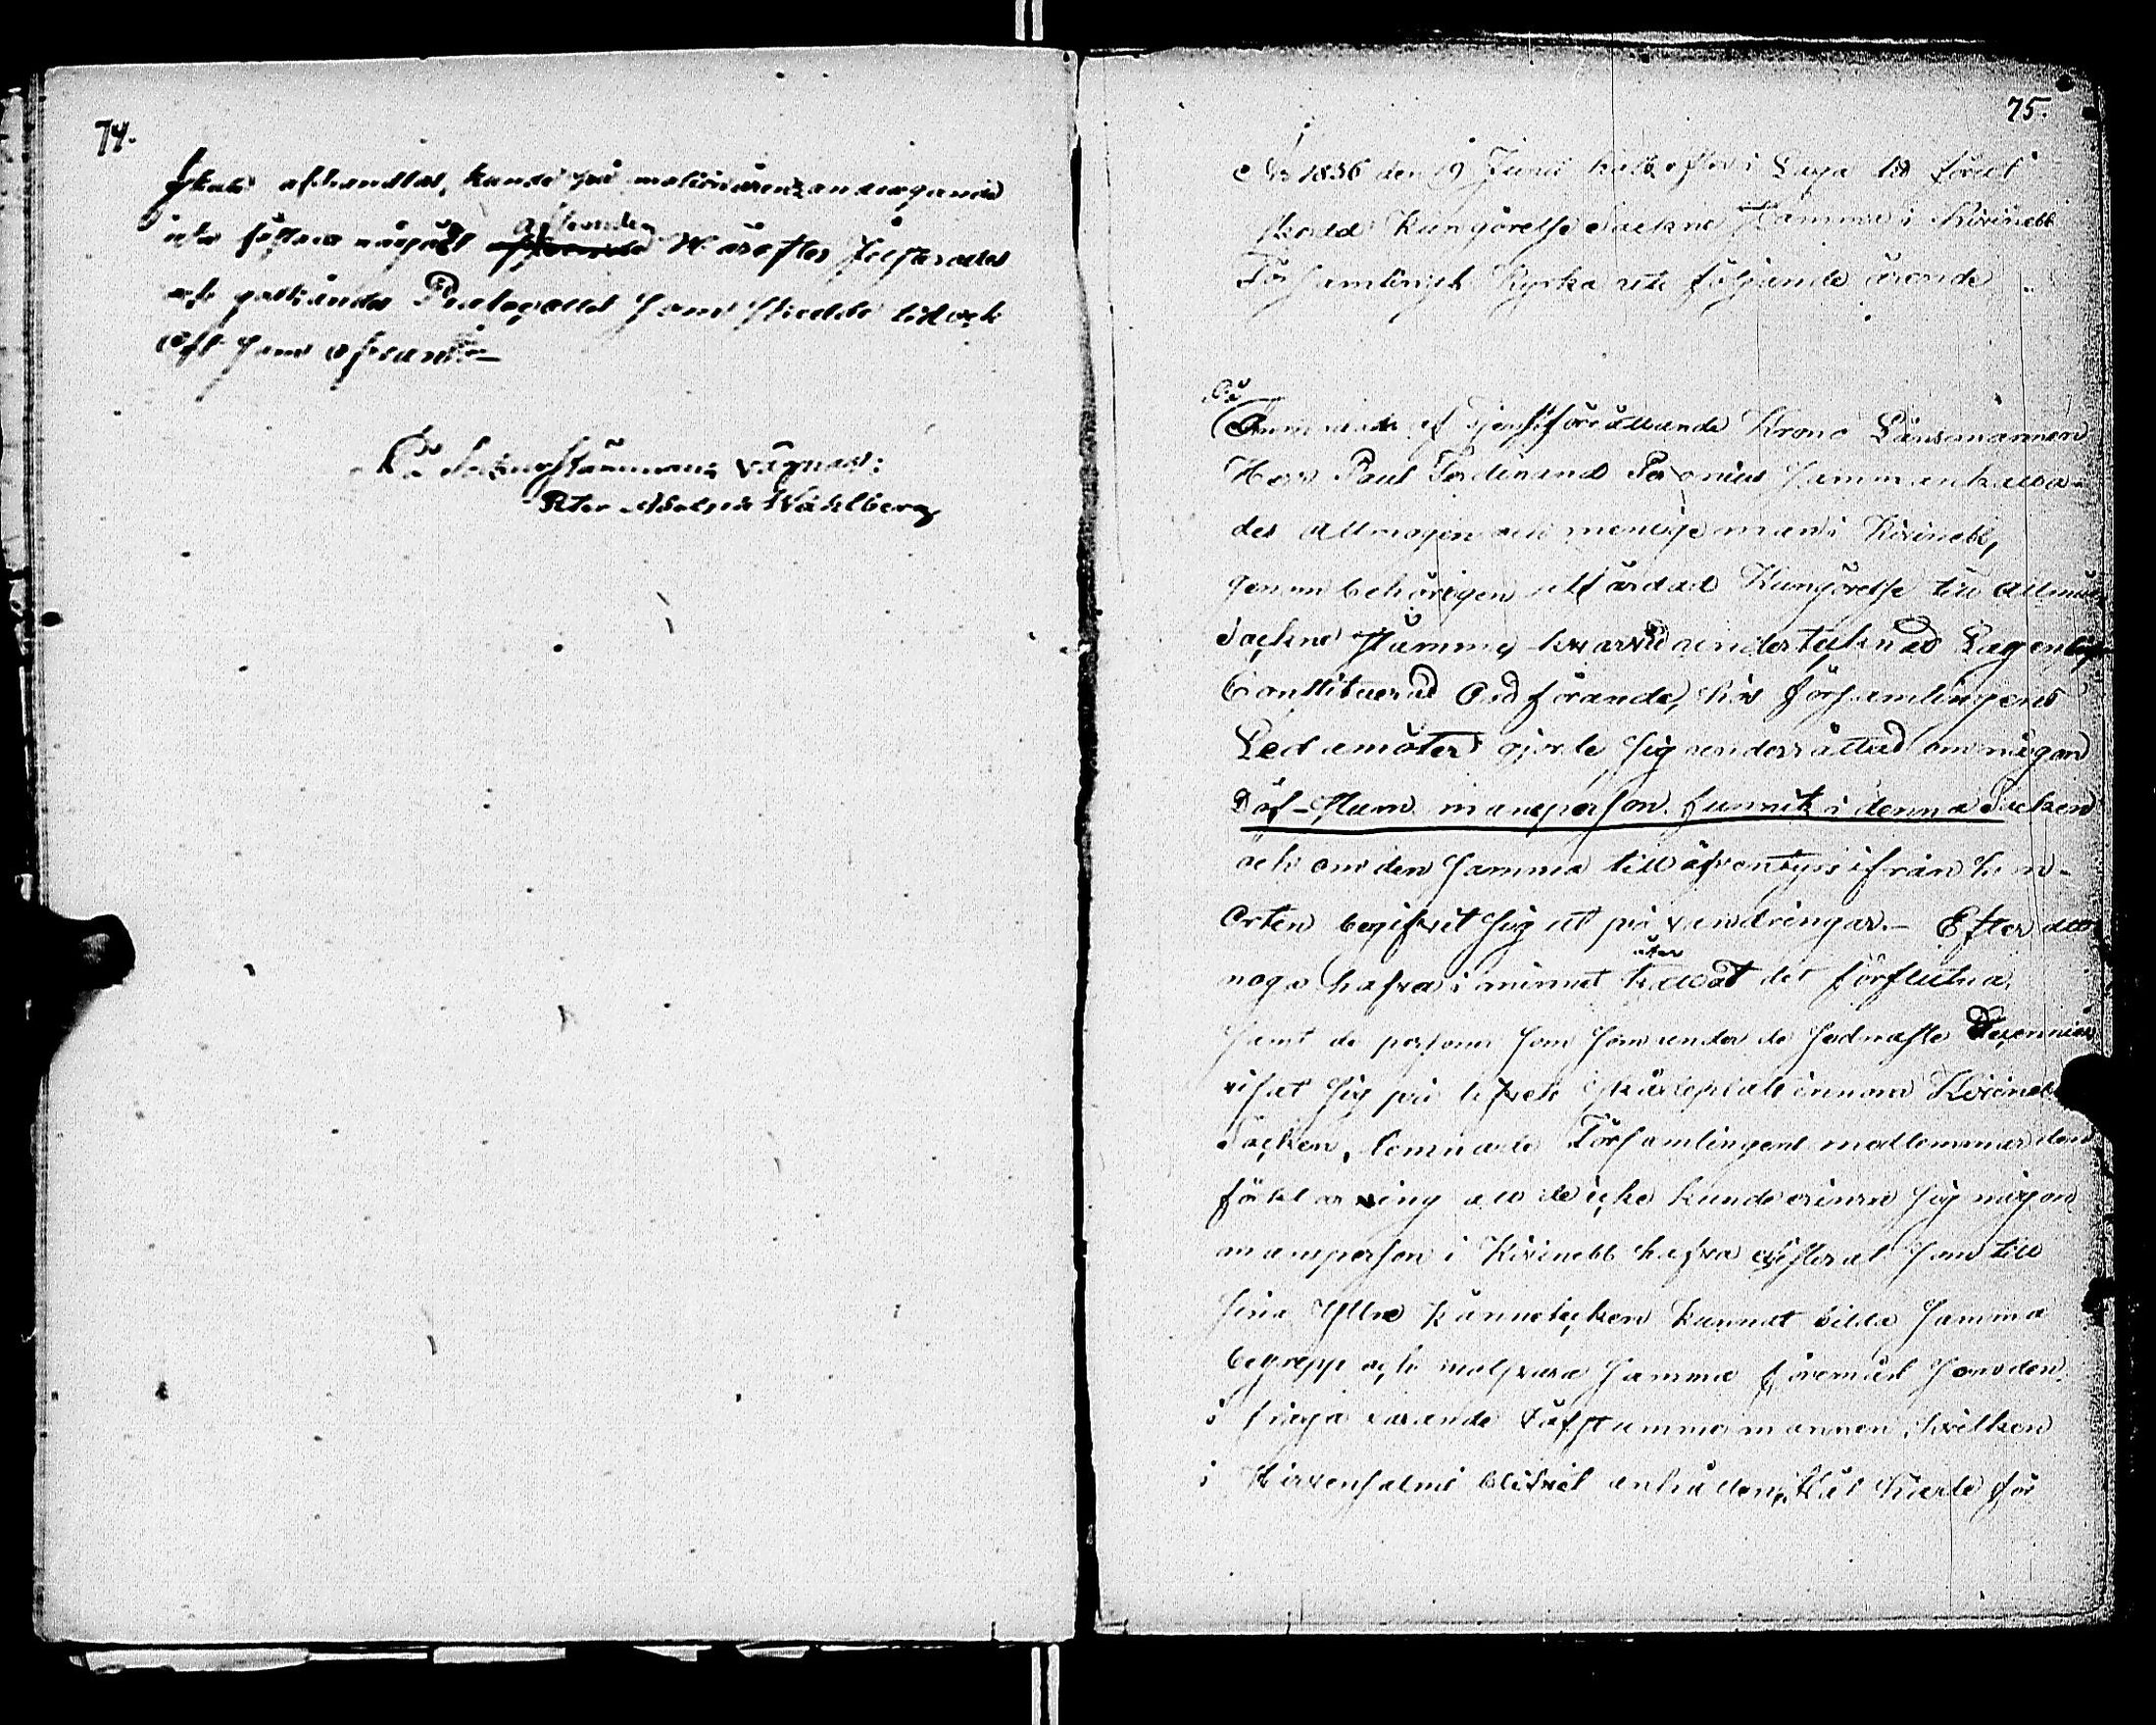 74.
afhandlas, kunde på motionärens andragande
icke fästas något afseende afseende Härefter justerades
och godkändes Protocollet som skedde tid och
ort som ofvan
På Sockenstämmans vägnar:
Peter Adolph Wahlberg
75.
År 1856 den 19 Junii hölls efter i Laga tid förut
skedd Kungörelse Sockne Stämma i Kivinebb
Församlings Kyrka uti följande ärende
På
Anmodan af Tjenstförrättande Krono Länsmannen
Herr Paul Ferdinand sammankalla-
des Allmogen och menige man i Kivinebb,
genom behörigen utfärdad Kungörelse till allmän
Sockne Stämma, hvarvid undertecknad Lagenligt
Constituerad Ordförande, hos församlingens
Ledamöter gjorde sig underrättad om någon
Döf-stum mansperson funnits i denna Socken
och om den samma till äfventyrs ifrån hem-
orten begifvit sig ut på vandringar. - Efter att
noga hafva i minnet åter kallat det förflutna,
samt de personer som som under de sednaste Decennier
visat sig på lifvets skådeplats innom Kivinebb
Socken, lemnade Församlingens medlemmar den
förklarning att de icke kunde erinra sig någon
mansperson i Kivinebb hafva existerat som till
sina yttre kännetecken kunnat bilda samma
begrepp och motsvara samma föremål som den
i fråga varande döfstumma mannen, hvilken
i Kirvensalmi blifvit anhållen,